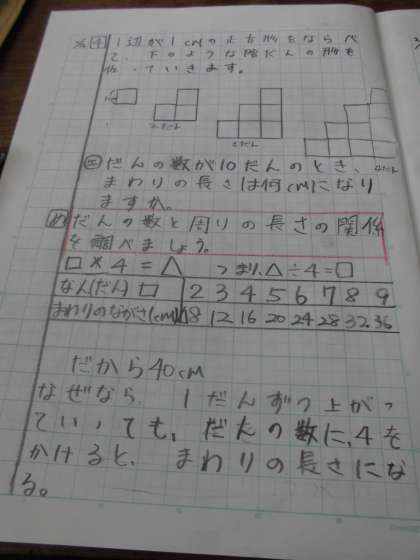 4 1辺が1cmの正方形をならべ
て、下のような階だんの形を
作っていきます。
2だん
4だん
だんの数が10だんのとき、
まわりの長さは何cmになり
ますか。
め だんの数と周りの長さの関係
を調べましょう。
□×4=△ つまり、△÷4=□
なん(だん) □ 2 3 4 5 6 7 8 9
まわりのながさ(cm) △ 8 12 16 20 24 28 32 36
だから40cm
なぜなら、1だんずつ上がっ
ていっても、だんの数に、4を
かけると、まわりの長さにな
る。